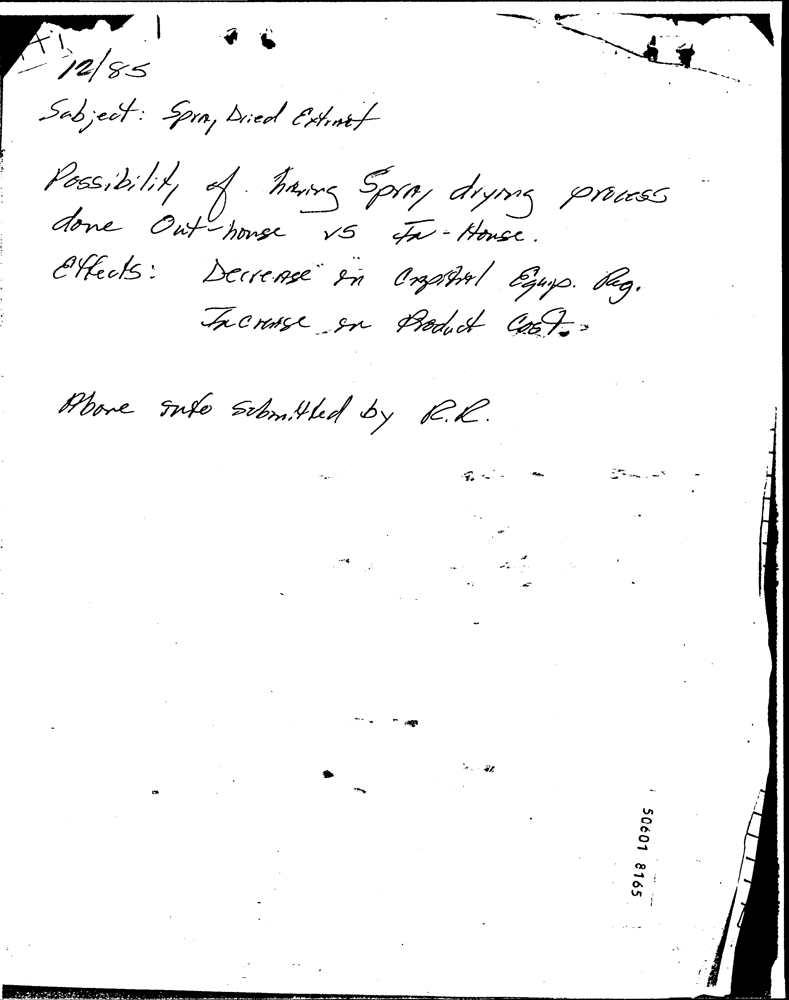 12/85
Subject: Spray Dried Extract
Possibility of having Spray drying process
done Out-house vs In-House.
Effects: Decrease in Capital Equip. Reg.
Increase in Product Cost.
Above info submitted by R.R.
50601 8165